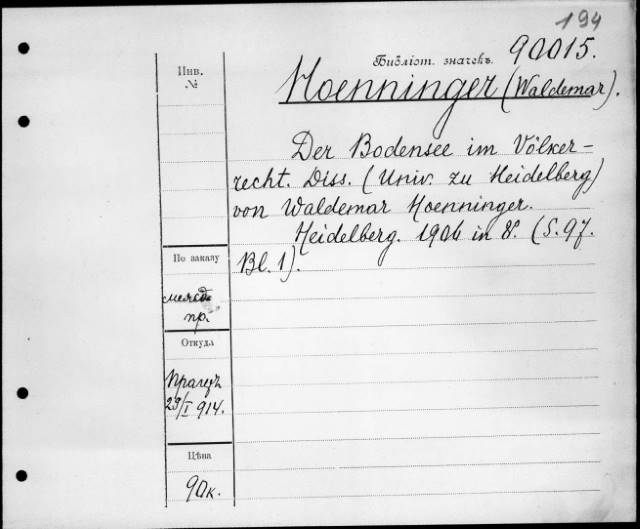 194
Библіот. значекъ. 90015.
Инв.
№
Hoenninger (Waldemar).
Der Bodensee im Völker-
recht. Diss. (Univ. zu Heidelberg)
von Waldemar Hoenninger.
Heidelberg. 1906 in 8°. (S. 97.
Bl. 1).
По заказу
пр.
Откуда
Прагеръ
23/I 914.
Цѣна
90к.